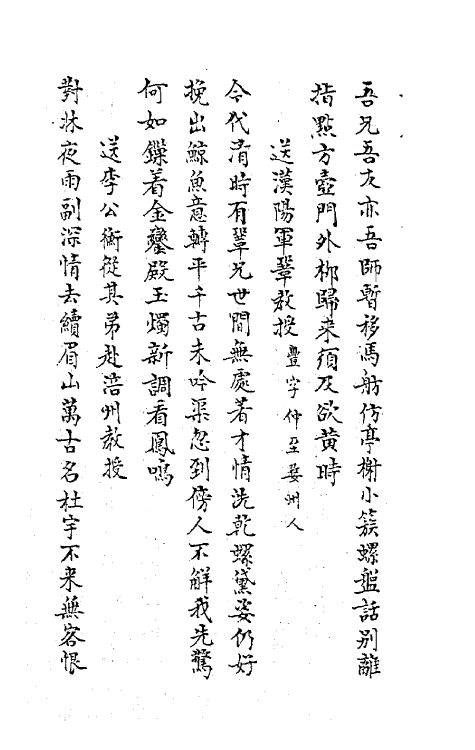 吾兄吾友亦吾師暫移馮舫仿亭榭小簇螺盤話別離
指點方壺門外柳歸来須及欲黄時
送漢陽軍鞏教授豐字仲至婺州人
今代清時有鞏兄世間無處著才情洗乾螺黛姿仍好
挽出鯨魚意轉平千古未吟渠忽到傍人不解我先驚
何如鏁着金鑾殿玉燭新調看鳳鳴
送李公衡從其弟赴涪州教授
對牀夜雨副深情去續眉山萬古名杜宇不来無客恨